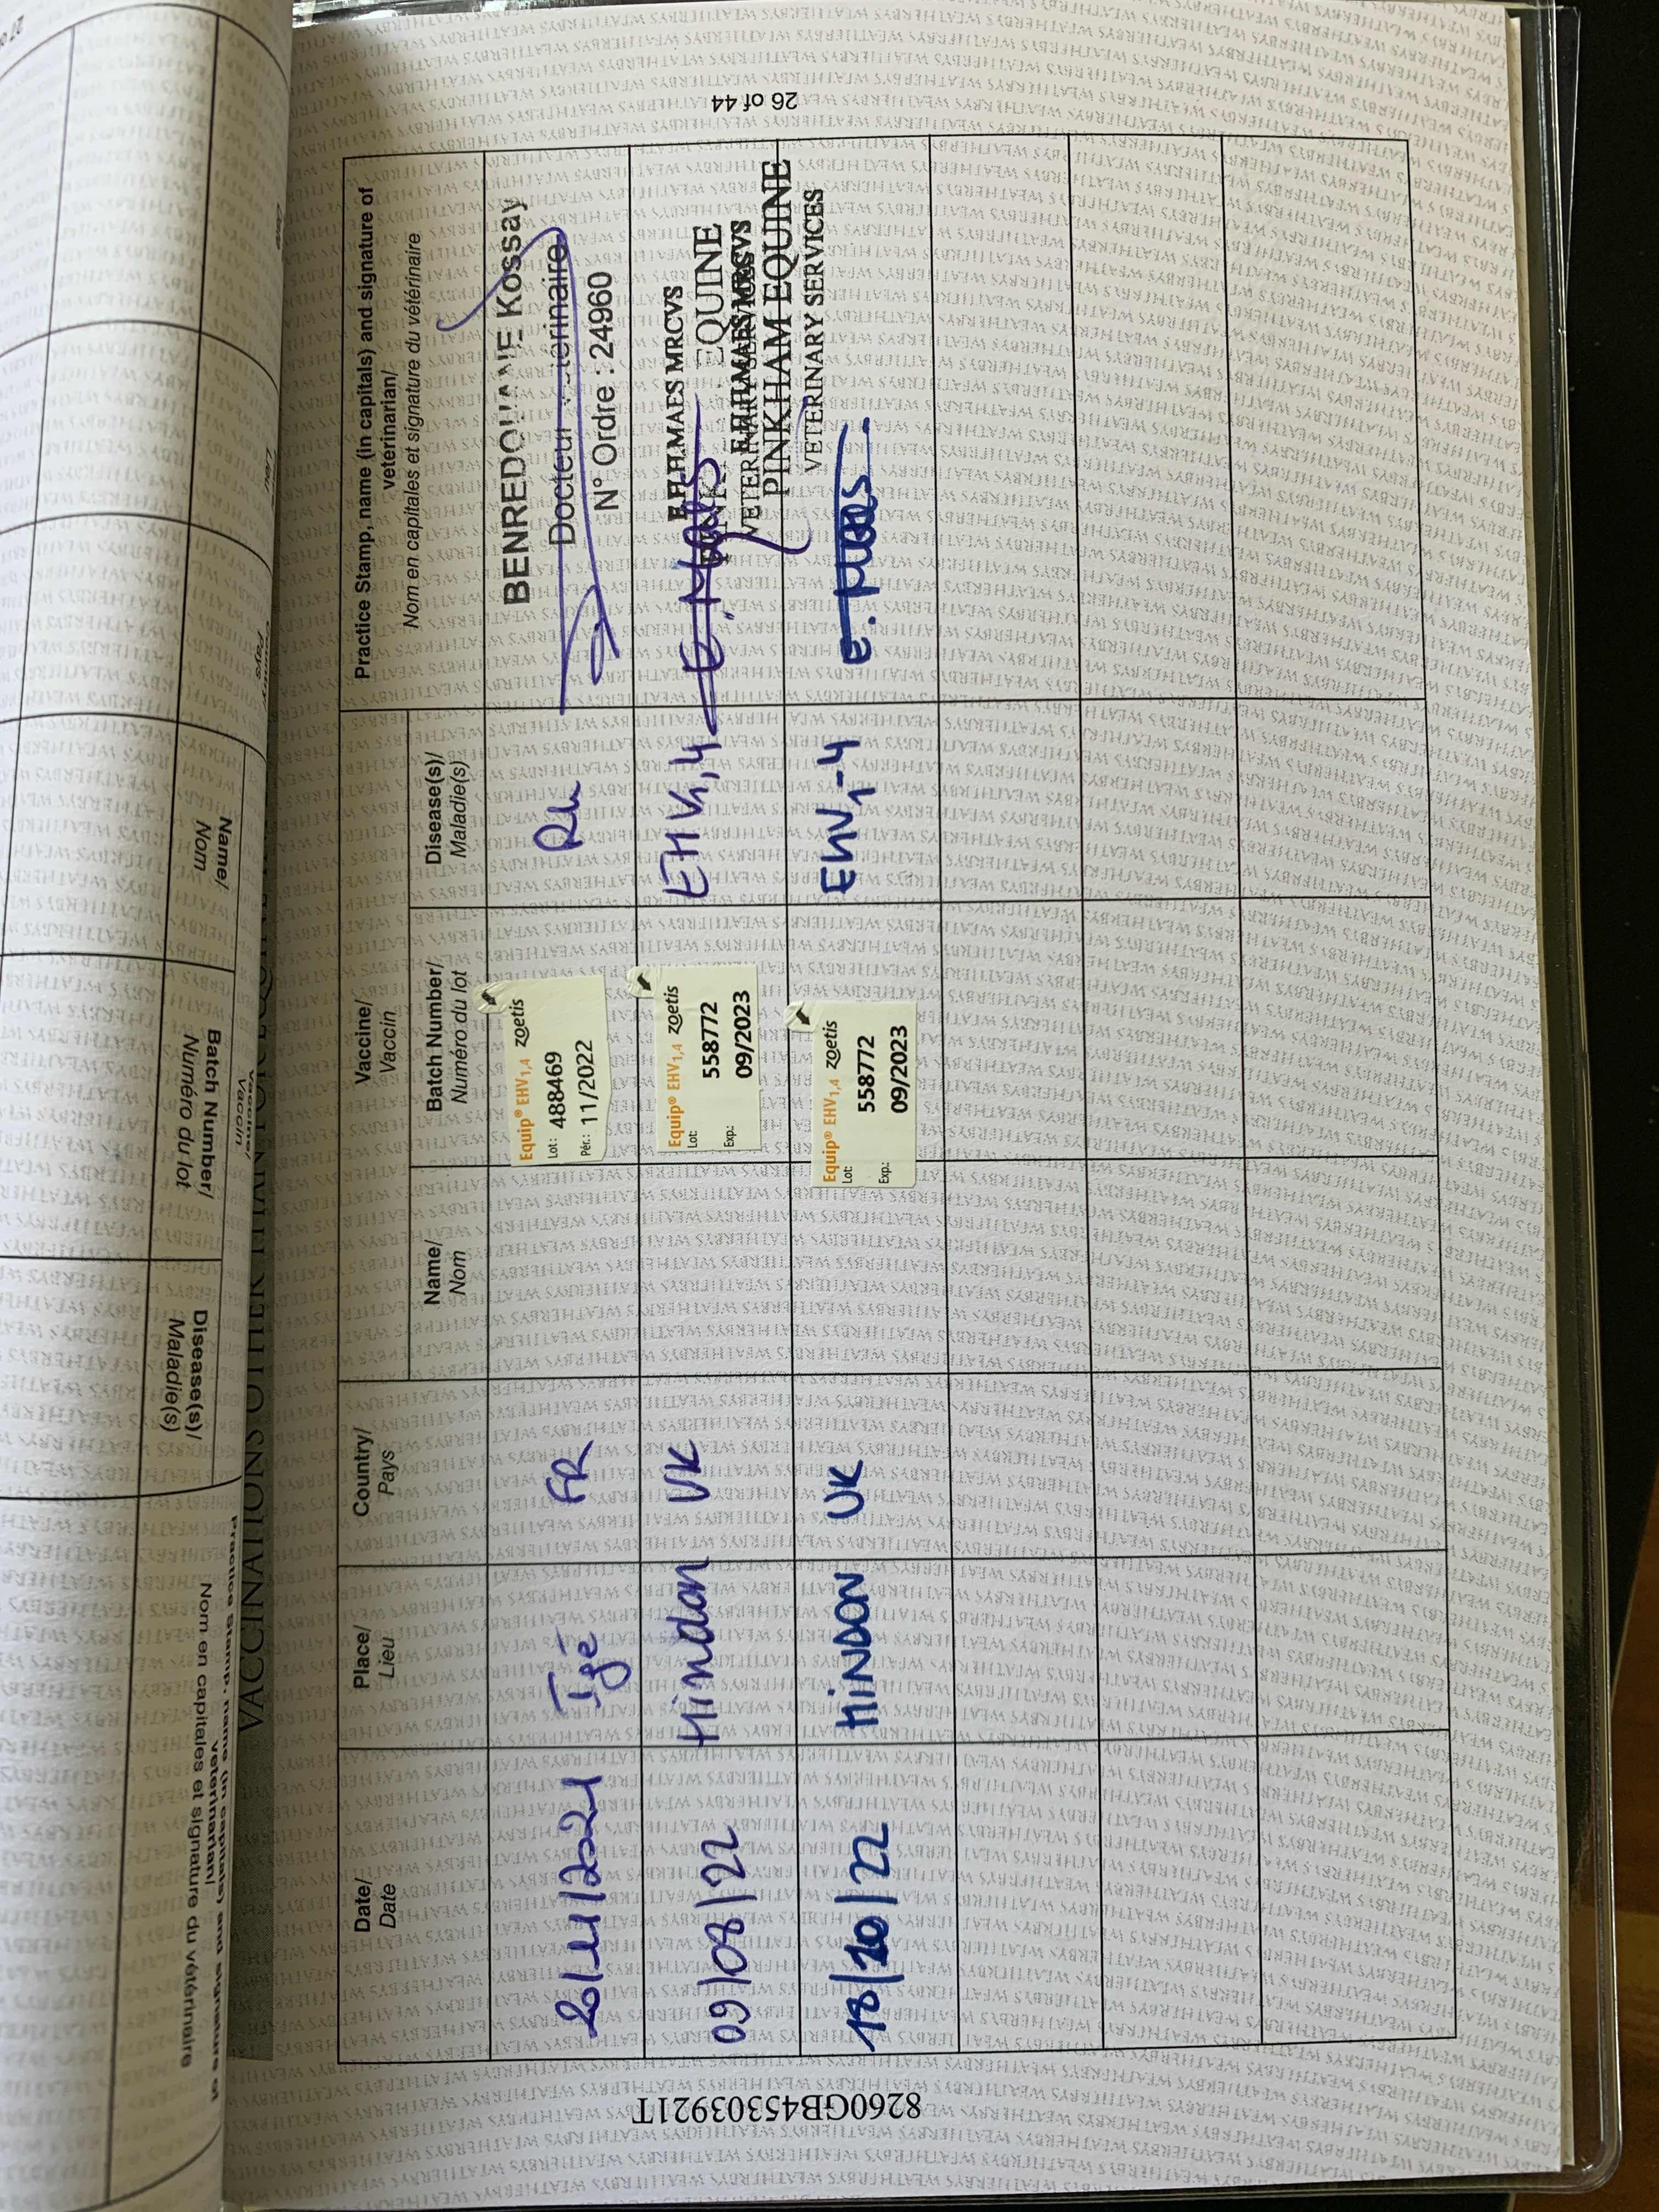 VACCINATIONS OTHER THAN
Date/
Date
Place/
Lieu
Country/
Pays
Vaccine/
Vaccin
Name/
Nom
Batch Number/
Numéro du lot
Disease(s)/
Maladie(s)
Practice Stamp, name (in capitals) and signature of
veterinarian/
Nom en capitales et signature du vétérinaire
20/11/2021 Igé FR
Equip® EHV1,4 zoetis
Lot: 488469
Pér.: 11/2022
Rh
BENREDOUANE Kossay
Docteur vétérinaire
N° Ordre : 24960
09/08/22 Hindon UK
Equip® EHV1,4 zoetis
Lot: 558772
Exp.: 09/2023
EHV1,4
E.F.H.MAES MRCVS
EQUINE
E. Maes
18/10/22 HINDON UK
Equip® EHV1,4 zoetis
Lot: 558772
Exp.: 09/2023
EHV1-4
E.F.H.MAES MRCVS
PINKHAM EQUINE
VETERINARY SERVICES
E. Maes
8260GB45303921T
26 of 44
Vaccine/
Vaccin
Name/
Nom
Batch Number/
Numéro du lot
Disease(s)/
Maladie(s)
Practice Stamp, name (in capitals) and signature of
veterinarian/
Nom en capitales et signature du vétérinaire